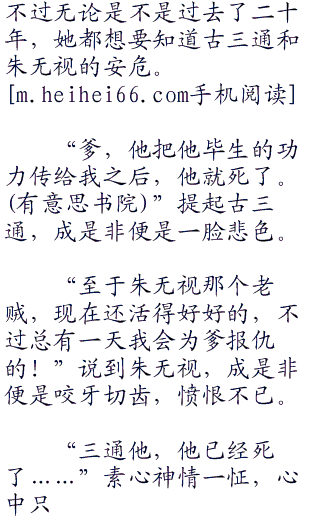 不过无论是不是过去了二十
年，她都想要知道古三通和
朱无视的安危。
[m.heihei66.com手机阅读]
“爹，他把他毕生的功
力传给我之后，他就死了。
(有意思书院)”提起古三
通，成是非便是一脸悲色。
“至于朱无视那个老
贼，现在还活得好好的，不
过总有一天我会为爹报仇
的！”说到朱无视，成是非
便是咬牙切齿，愤恨不已。
“三通他，他已经死
了……”素心神情一怔，心
中只